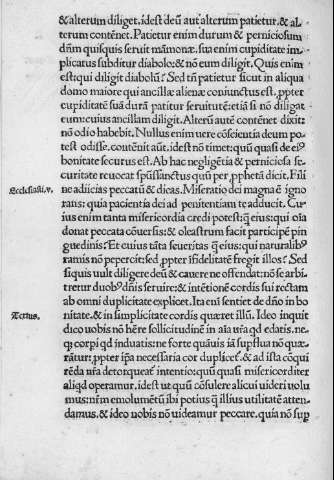 & alterum diliget. idest deū aut alterum patietur. & al-
terum contēnet. Patietur enim durum & perniciosum
dn̄m quisquis seruit māmonæ. sua enim cupiditate im-
plicatus subditur diabolo: & nō eum diligit. Quis enim
est: qui diligit diabolū? Sed tn̄ patietur sicut in aliqua
domo maiore qui ancillæ alienæ coniunctus est. ꝓpter
cupiditatē suā durā patitur seruitutē: etiā si nō diligat
eum: cuius ancillam diligit. Alterū autē contēnet dixit:
nō odio habebit. Nullus enim uere cōscientia deum po-
test odisse. contēnit aūt. idest nō timet: quū quasi de ei⁹
bonitate securus est. Ab hac negligētia & perniciosa se-
curitate reuocat spūssanctus quū per ꝓphetā dicit. Fili
Ecclesiasti. v.
ne adiicias peccatū & dicas. Miseratio dei magna ē: igno
rans: quia pacientia dei ad penitentiam te adducit. Cu-
ius enim tanta misericordia credi potest: q̄ eius: qui oīa
donat peccata cōuersis: & oleastrum facit participē pin
guedinis? Et cuius tāta seueritas q̄ eius: qui naturalib⁹
ramis nō pepercit: sed ꝓpter ifidelitatē fregit illos? Sed
siquis uult diligere deū & cauere ne offendat: nō se arbi
tretur duob⁹ dn̄is seruire: & intētionē cordis sui rectam
ab omni duplicitate explicet. Ita eni sentiet de dn̄o in bo
nitate. & in simplicitate cordis quæret illū. Ideo inquit
Tertius.
dico uobis nō hr̄e sollicitudinē in aīa ur̄a qd edatis. ne-
q; corpi qd induatis: ne forte quāuis iā supflua nō quæ-
rātur: ꝓpter ipa necessaria cor duplicet. & ad ista cōqui
rēda ur̄a detorqueat intentio: quū quasi misericorditer
aliqd operamur. idest ut quū cōsulere alicui uideri uolu
mus: nr̄m emolumētū ibi potius q̄ illius utilitatē atten-
damus. & ideo nobis nō uideamur peccare. quia nō sup